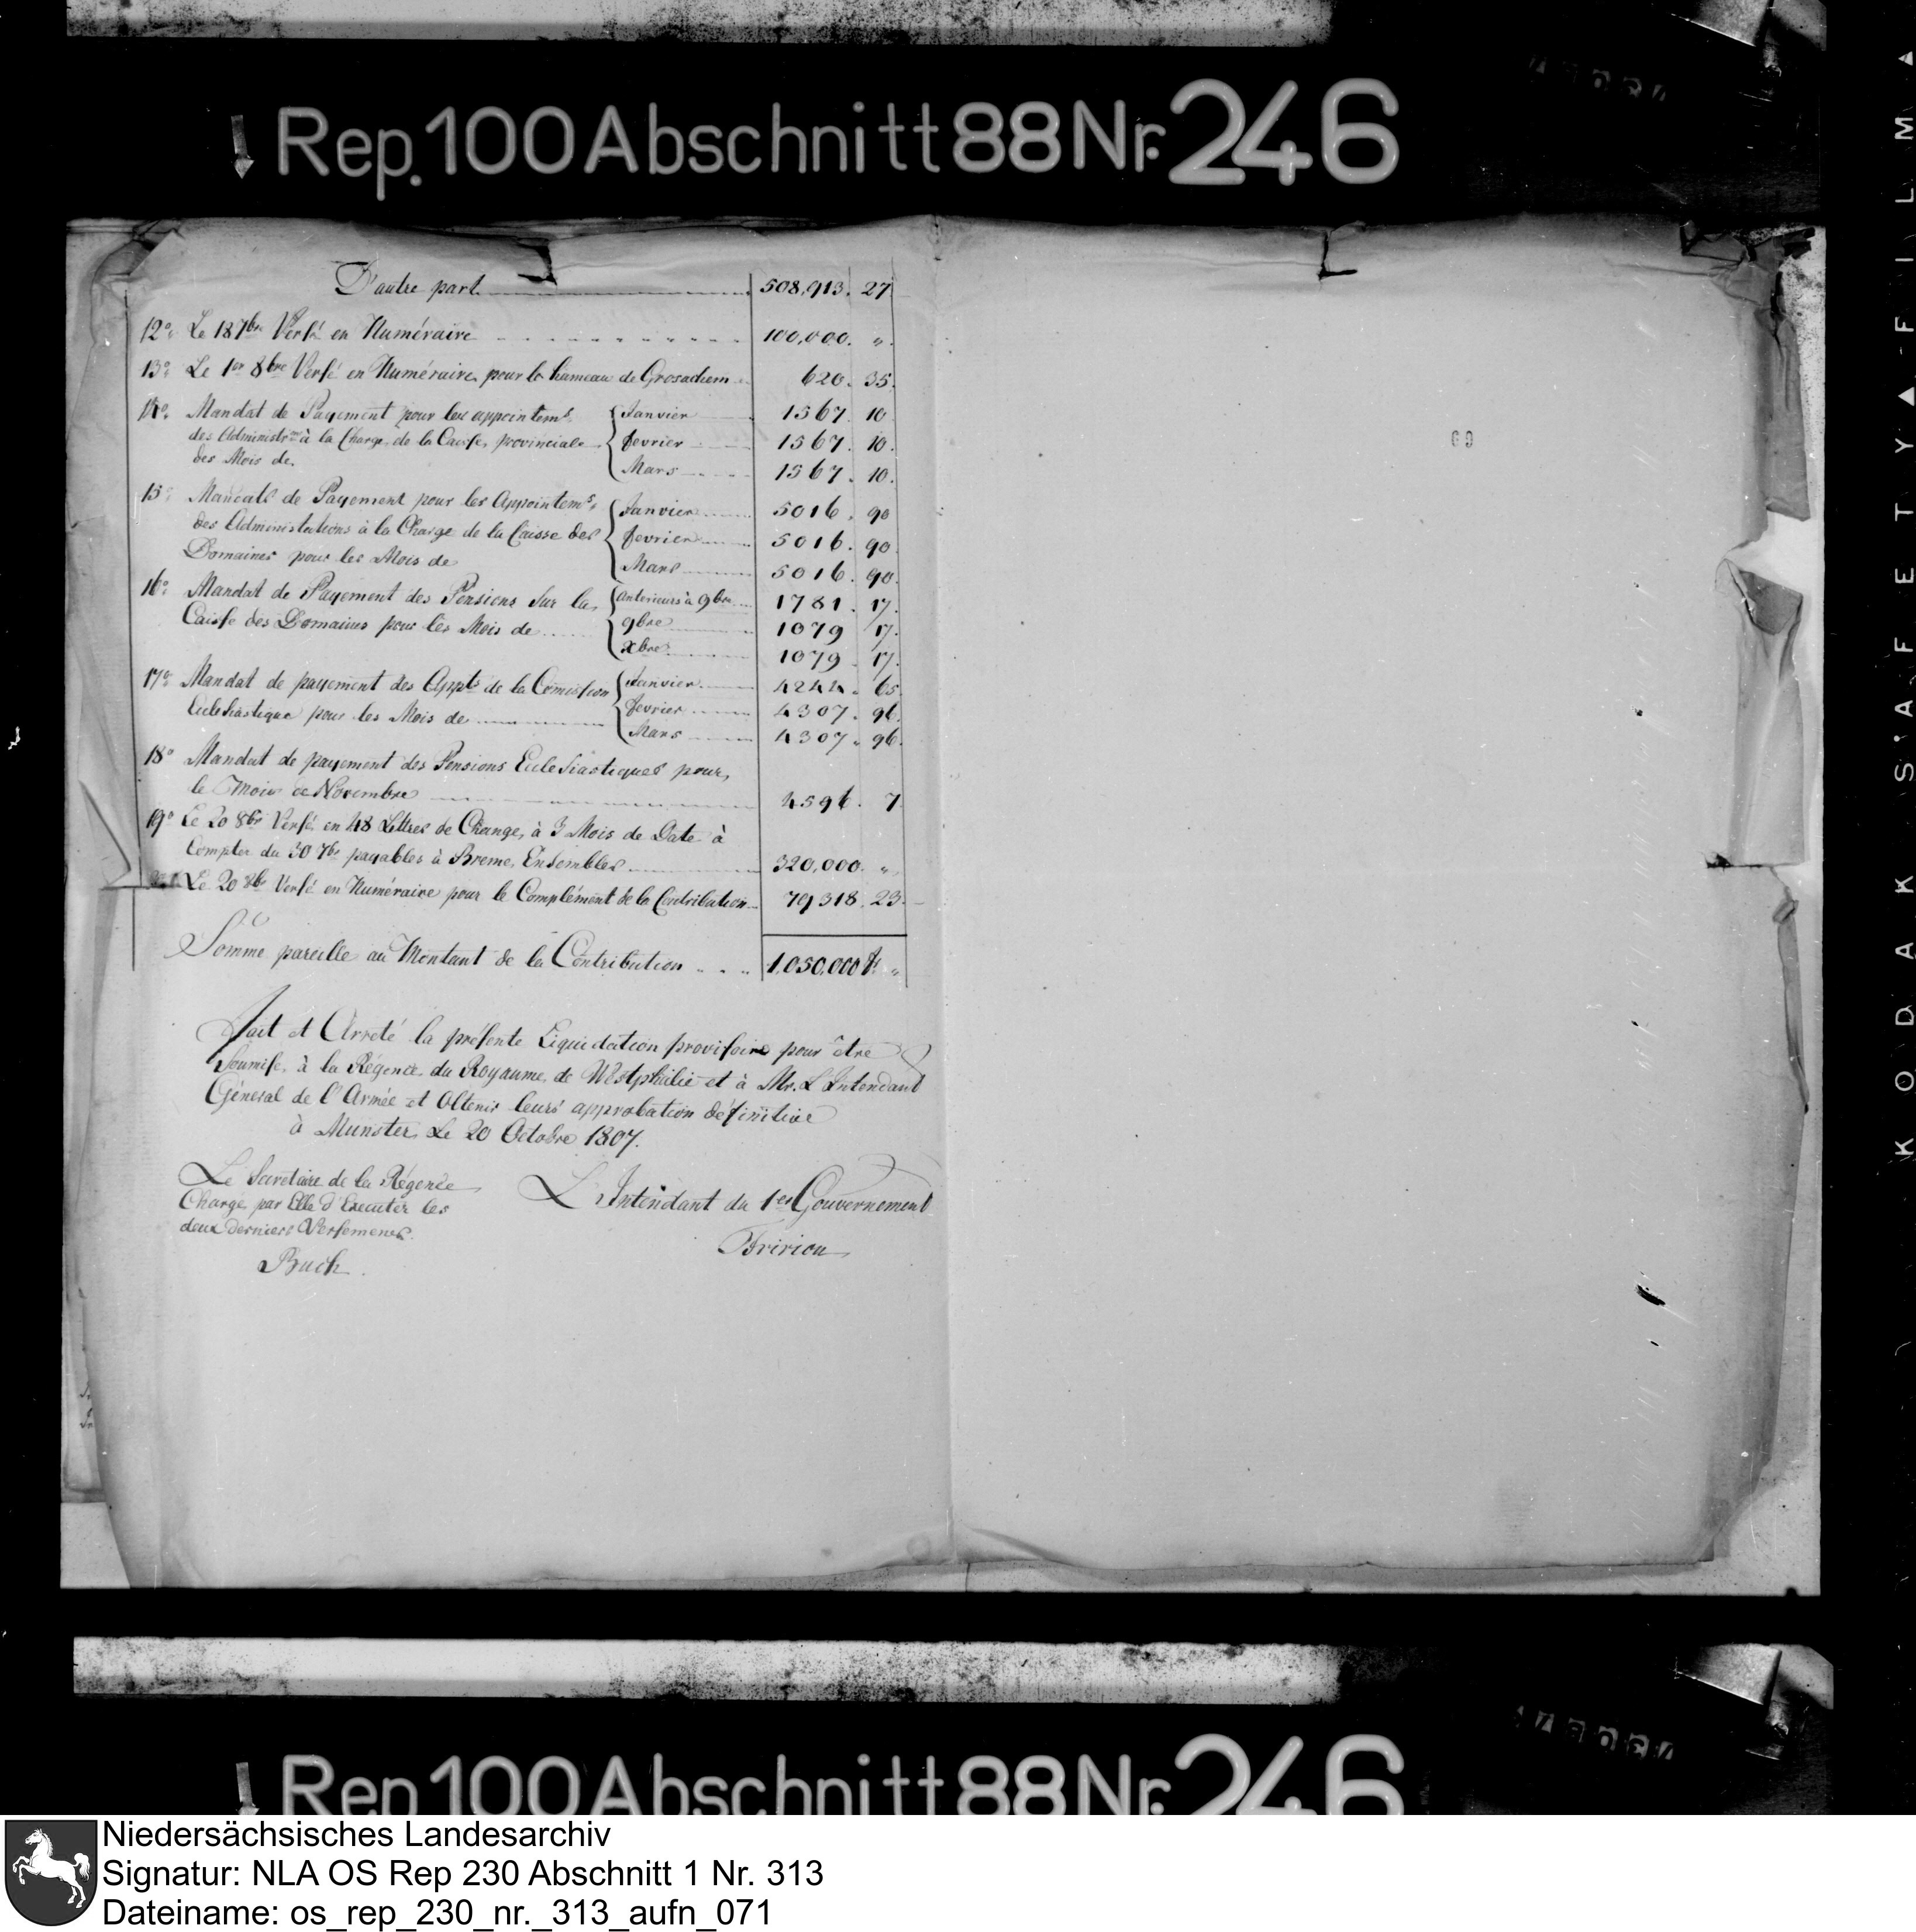 Rep. 100 Abschnitt 88 Nr. 246
D'autre part 508,913. 27
12° Le 18 7bre Versé en Numéraire 100,000. "
13° Le 1er 8bre Versé en Numéraire pour le hameau de Grosachem 620. 35.
14° Mandat de Payement pour les appointems Janvier 1567. 10
des Administrons à la Charge de la Caisse provinciale fevrier 1567. 10.
des Mois de Mars 1567. 10.
15° Mandats de Payement pour les Appointems Janvier 5016. 90
des Administrations à la Charge de la Caisse des fevrier 5016. 90
Domaines pour les Mois de Mars 5016. 90.
16° Mandat de Payement des Pensions sur la anterieurs à 9bre 1781. 17.
Caisse des Domaines pour les Mois de 9bre 1079 17.
xbre 1079. 17.
17° Mandat de payement des Appts de la Comission Janvier 4244. 65
Ecclesiastique pour les Mois de fevrier 4307. 96.
Mars 4307. 96.
18° Mandat de payement des Pensions Ecclesiastiques pour
le Mois de Novembre 4596. 7
19° Le 20 8bre Versé en 48 Lettres de Change à 3 Mois de Date à
Compter du 30 7bre payables à Breme, Ensembles 320,000. "
Le 20 8bre Versé en Numéraire pour le Complément de la Contribution 79318. 23.
Somme pareille au Montant de la Contribution 1,050,000 fs "
Fait et Arreté la présente Liquidation provisoire pour être
Soumise à la Régence du Royaume de Westphalie et à Mr. L'Intendant
Géneral de l'Armée et Obtenir leurs approbation définitive
à Munster Le 20 Octobre 1807.
Le Secretaire de la Régence
Chargé par Elle d'Executer les
deux derniers Versemens.
Buch.
L'Intendant du 1er Gouvernement
Fririon
KODAK S'AFETY▲FILM▲
Rep 100 Abschnitt 88 Nr. 246
Niedersächsisches Landesarchiv
Signatur: NLA OS Rep 230 Abschnitt 1 Nr. 313
Dateiname: os_rep_230_nr._313_aufn_071